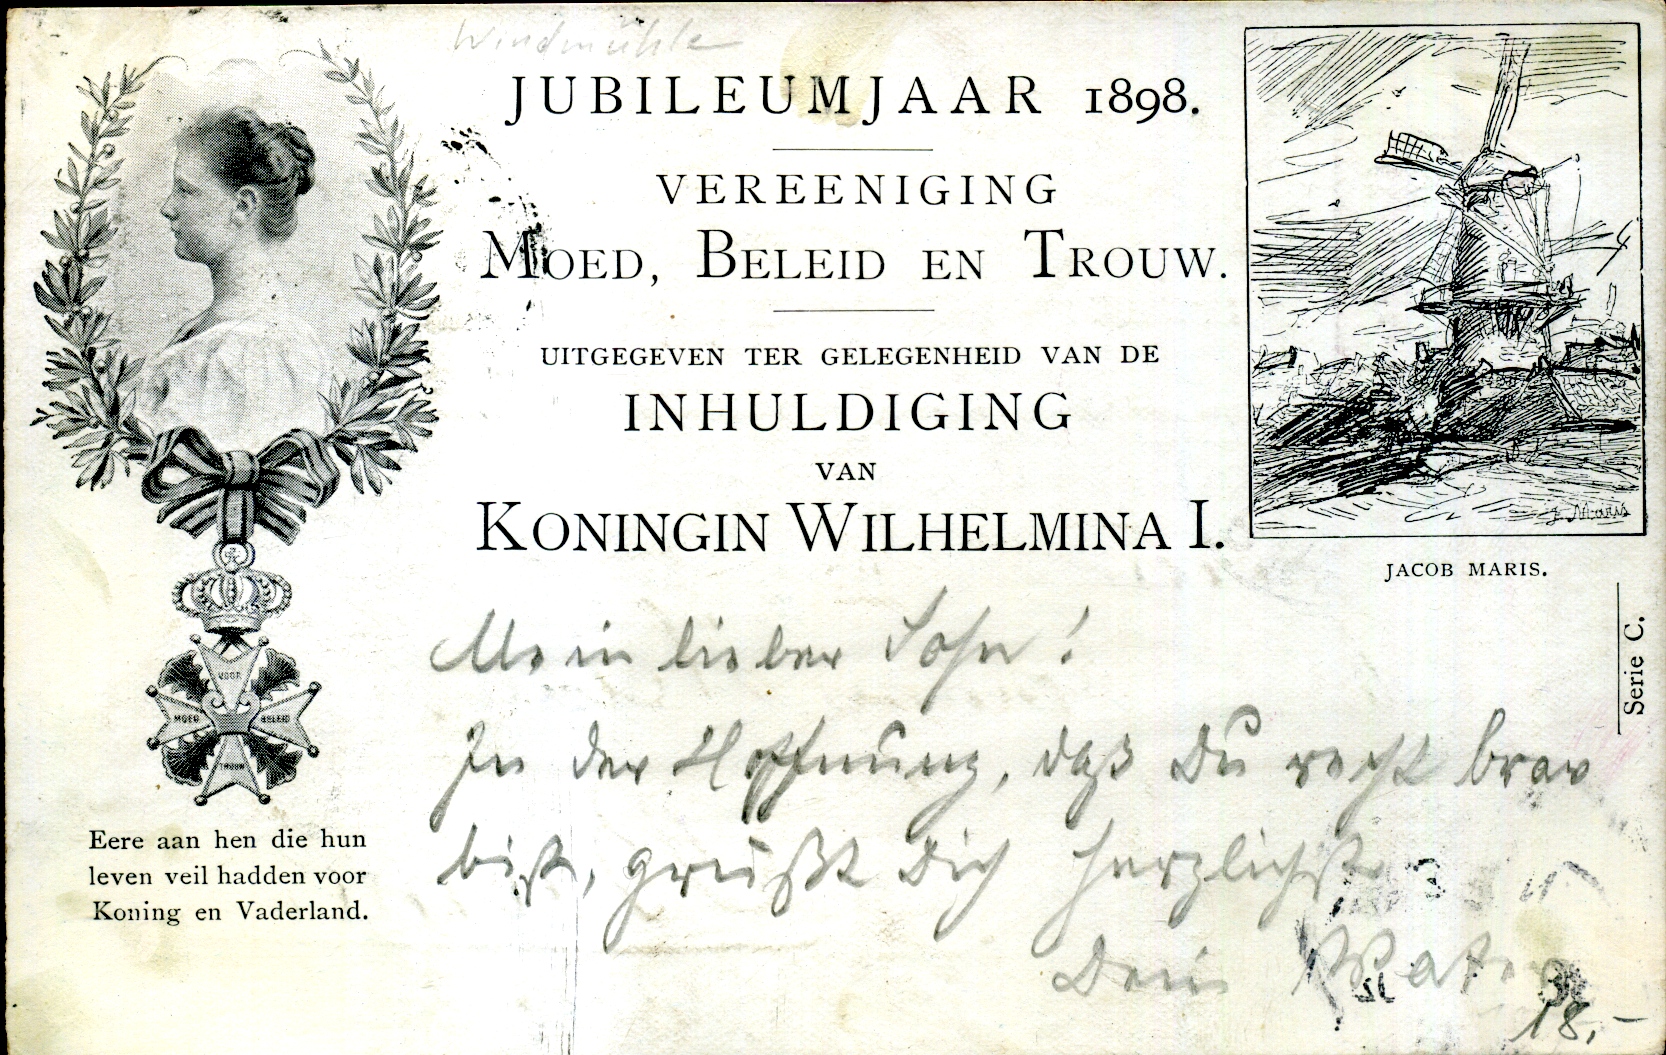 Windmühle
JUBILEUMJAAR 1898.
VEREENIGING
MOED, BELEID EN TROUW.
UITGEGEVEN TER GELEGENHEID VAN DE
INHULDIGING
VAN
KONINGIN WILHELMINA I.
J. Maris
JACOB MARIS.
Serie C.
VOOR
MOED
BELEID
TROUW
Eere aan hen die hun
leven veil hadden voor
Koning en Vaderland.
Mein lieber Sohn!
In der Hoffnung, daß Du recht brav
bist, grüßt Dich herzlichst
Dein Vater
18,-